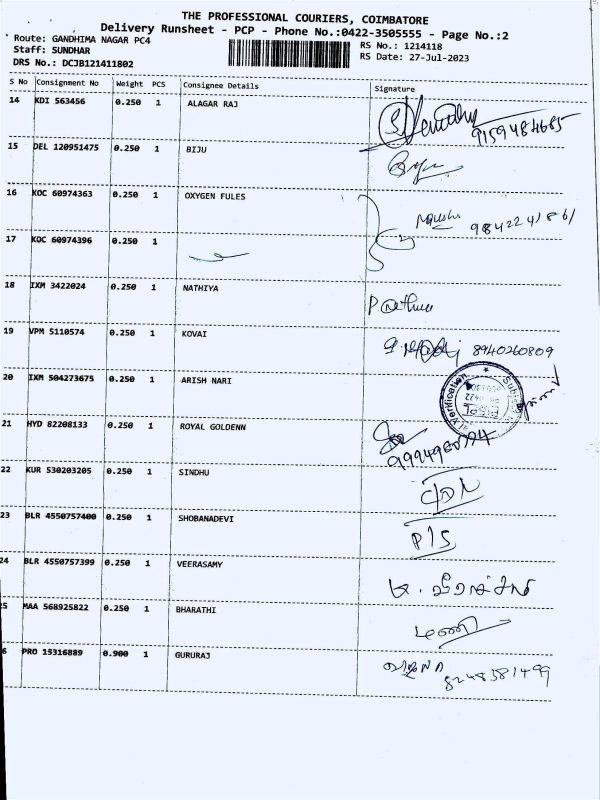 THE PROFESSIONAL COURIERS, COIMBATORE
Delivery Runsheet - PCP - Phone No.:0422-3505555 - Page No.:2
Route: GANDHIMA NAGAR PC4 RS No.: 1214118
Staff: SUNDHAR RS Date: 27-Jul-2023
DRS No.: DCJB121411802
S No Consignment No Weight PCS Consignee Details Signature
14 KDI 563456 0.250 1 ALAGAR RAJ
9159484685
15 DEL 120951475 0.250 1 BIJU
16 KOC 60974363 0.250 1 OXYGEN FULES
9842241861
17 KOC 60974396 0.250 1
18 IXM 3422024 0.250 1 NATHIYA
19 VPM 5110574 0.250 1 KOVAI
8940260809
20 IXM 504273675 0.250 1 ARISH NARI
Verification
21 HYD 82208133 0.250 1 ROYAL GOLDENN
22 KUR 530203205 0.250 1 SINDHU
23 BLR 4550757400 0.250 1 SHOBANADEVI
P/S
24 BLR 4550757399 0.250 1 VEERASAMY
25 MAA 568925822 0.250 1 BHARATHI
மணி
6 PRO 15316889 0.900 1 GURURAJ
8248381499